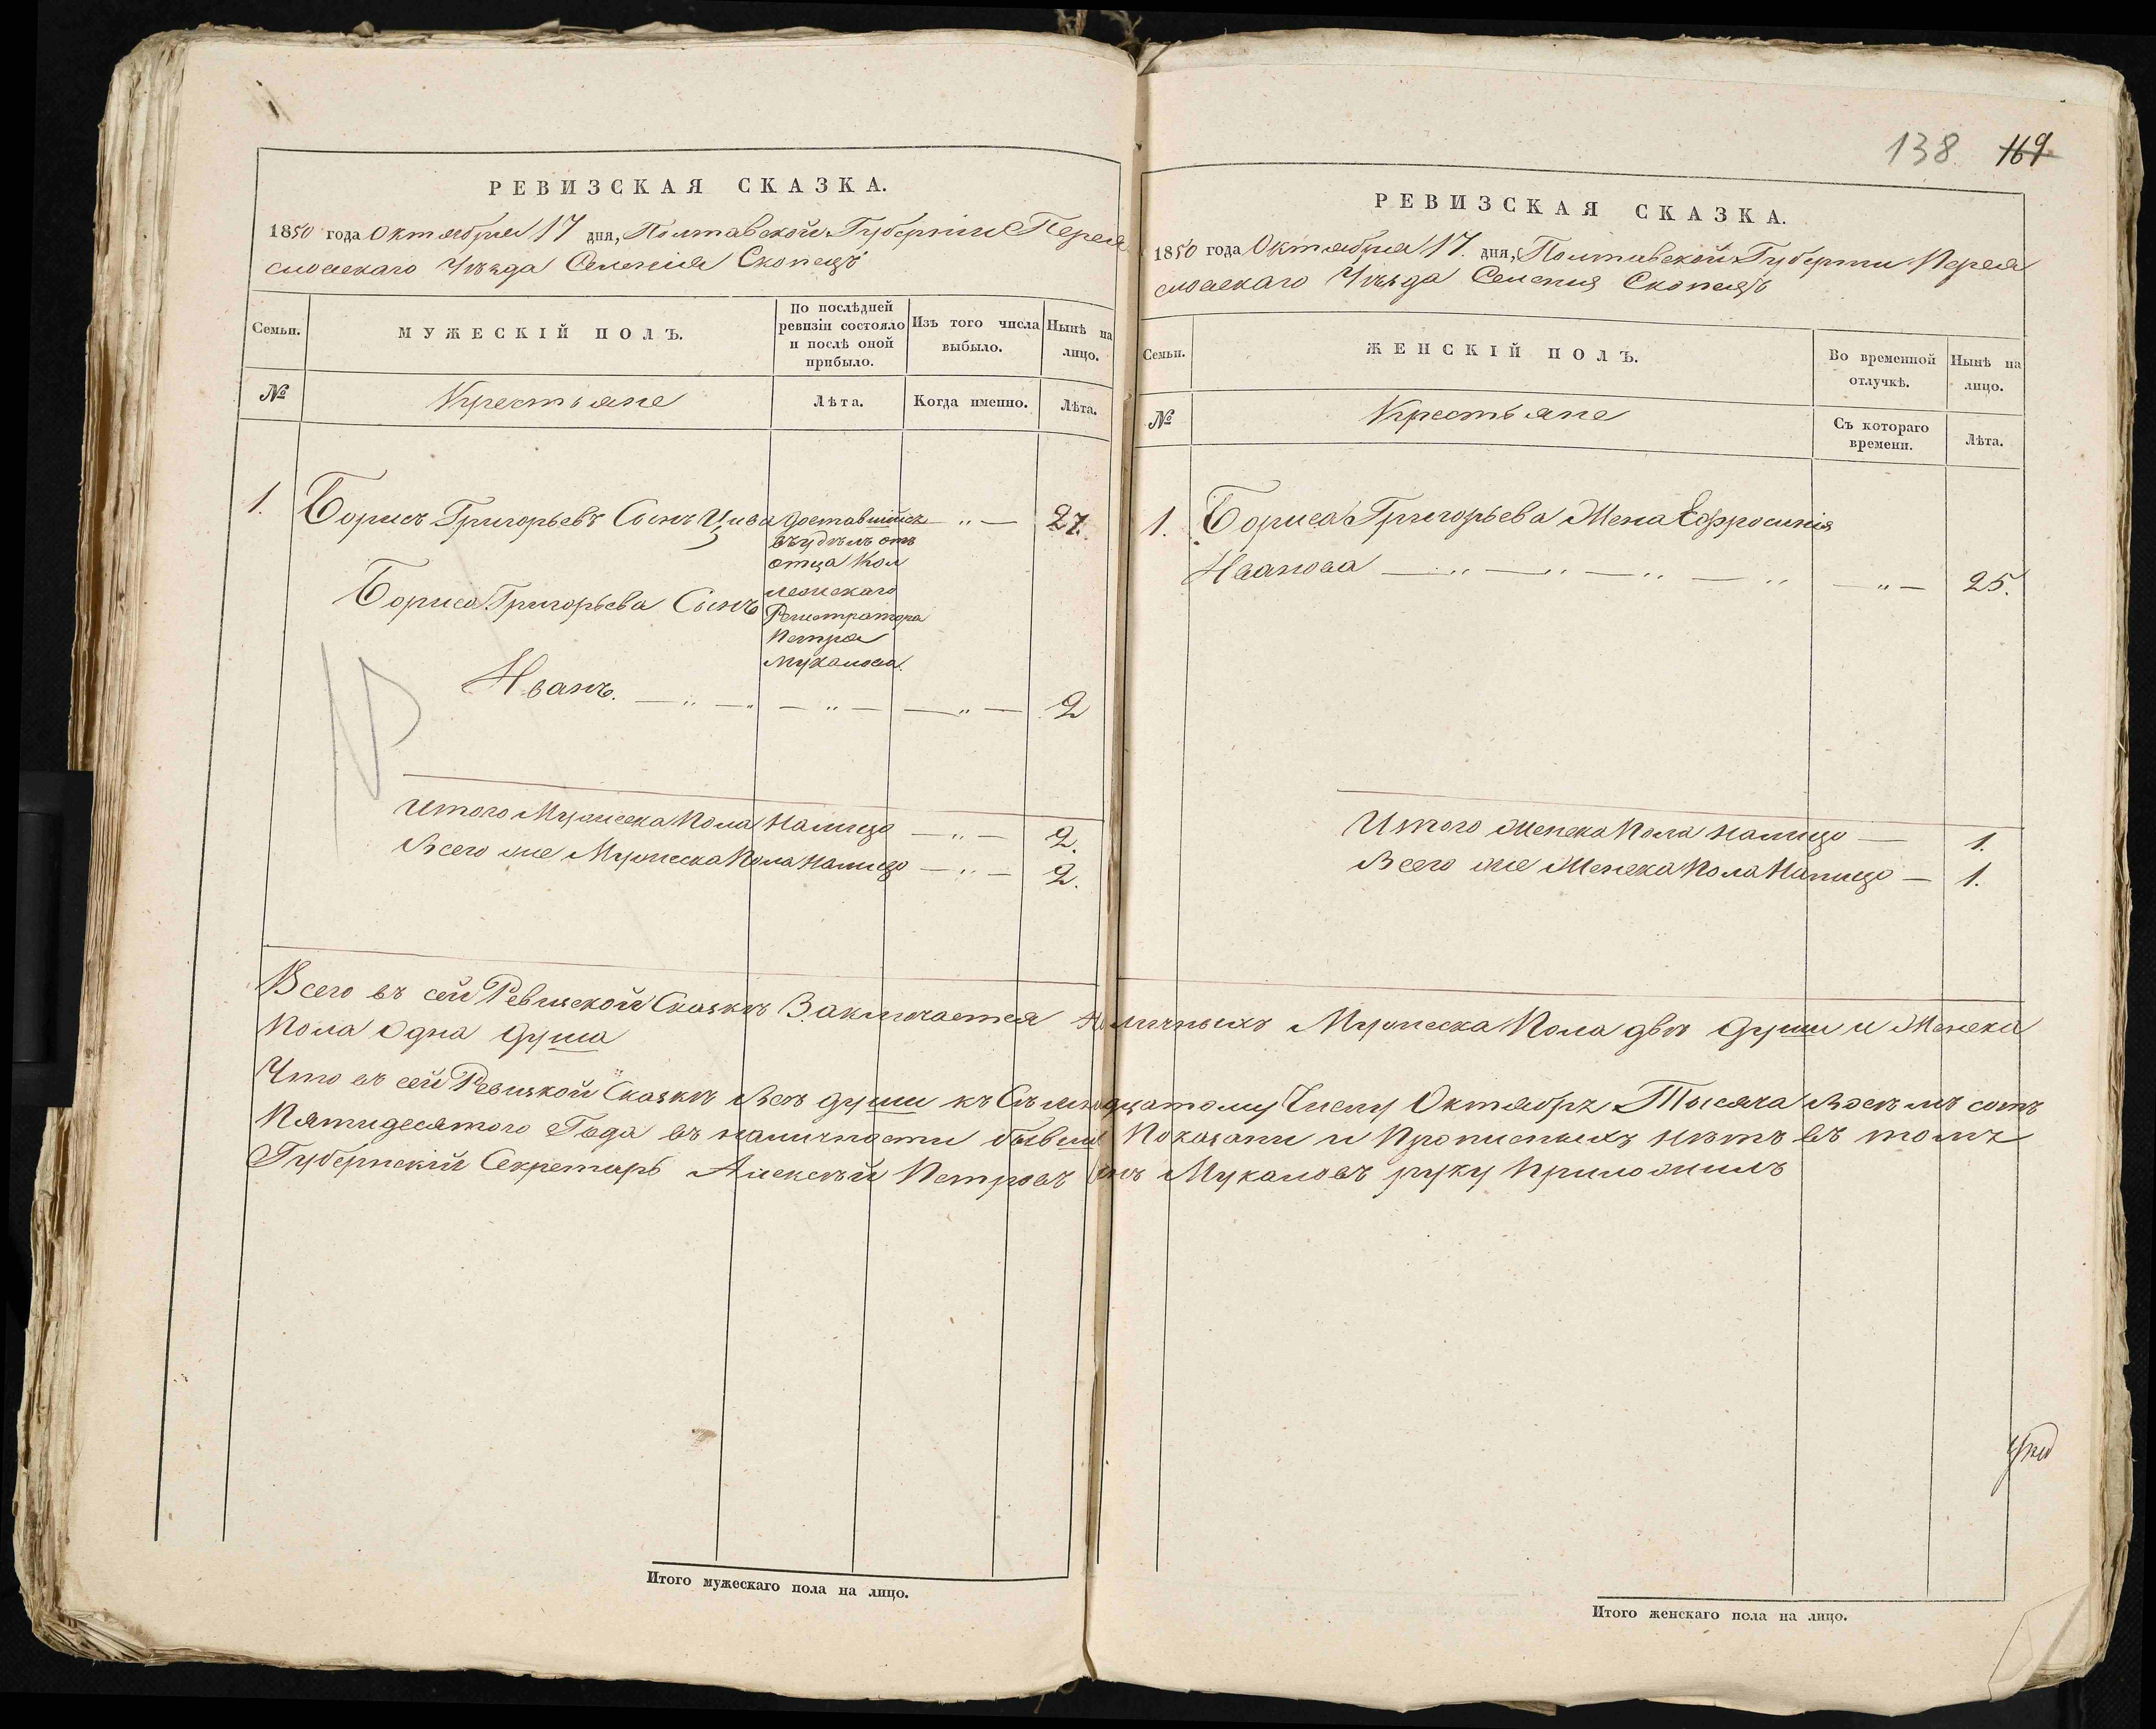 РЕВИЗСКАЯ СКАЗКА.
1850 года Октября 17 дня, Полтавской Губерніи Перея
словскаго Уѣзда Селенія Скопецъ
Семьи.
МУЖЕСКІЙ ПОЛЪ.
По послѣдней ревизіи состояло и послѣ оной прибыло.
Изъ того числа выбыло.
Нынѣ на лицо.
№
Крестьяне
Лѣта.
Когда именно.
Лѣта.
1. Борисъ Григорьевъ Сынъ Цива доставшійся — " — 27.
въ удѣлъ отъ
отца Кол
лежскаго
Бориса Григорьева Сынъ
Регистратора
Петра
Мукалова.
Иванъ. — " — " — " — — " — 2
Итого Мужеска Пола Налицо — " — 2.
Всего же Мужеска Пола Налицо — " — 2.
138 169
РЕВИЗСКАЯ СКАЗКА.
1850 года Октября 17. дня, Полтавской Губерніи Перея
словскаго Уѣзда Селенія Скопецъ
Семьи.
ЖЕНСКІЙ ПОЛЪ.
Во временной отлучкѣ.
Нынѣ на лицо.
№
Крестьяне
Съ котораго времени.
Лѣта.
1. Бориса Григорьева Жена Ефросинія
Иванова — " — " — " — " — " — 25.
Итого Женска Пола Налицо — 1.
Всего же Женска Пола Налицо — 1.
Всего въ сей Ревизской Сказкѣ Заключается Наличныхъ Мужеска Пола двѣ души и Женска
Пола Одна душа
Что въ сей Ревизкой Сказкѣ Всѣ души къ Семнадцатому Числу Октября Тысяча Восемь сотъ
Пятидесятого Года въ наличности бывшіе Показани и Прописныхъ нѣтъ въ томъ
Губернскій Секретарь Алексѣй Петровъ Сынъ Мукаловъ руку приложилъ
Итого мужескаго пола на лицо.
Итого женскаго пола на лицо.